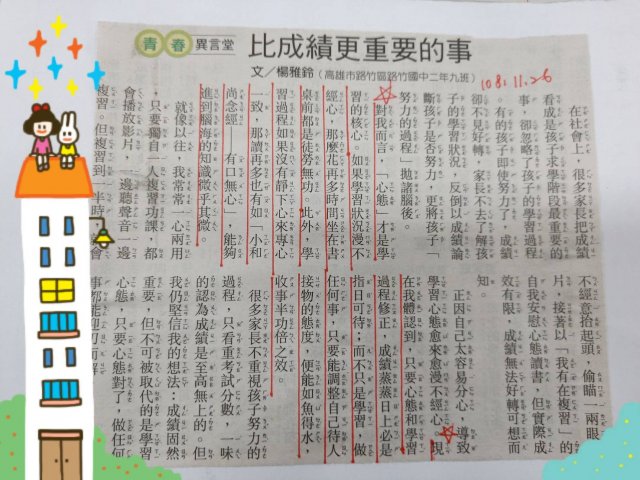 青春異言堂
比成績更重要的事
文／楊雅鈴（高雄市路竹區路竹國中二年九班）
108.11.26
在社會上，很多家長把成績
看成是孩子求學階段最重要的
事，卻忽略了孩子的學習過程
。有的孩子即使努力了，成績
卻不見好轉，家長不去了解孩
子的學習狀況，反倒以成績論
斷孩子是否努力，更將孩子「
努力的過程」拋諸腦後。
對我而言，「心態」才是學
習的核心。如果學習狀況漫不
經心，那麼花再多時間坐在書
桌前都是徒勞無功。此外，學
習過程如果沒有靜下心來專心
一致，那讀再多也有如「小和
尚念經——有口無心」，能夠
進到腦海的知識微乎其微。
就像以往，我常常一心兩用
，只要獨自一人複習功課，都
會播放影片，一邊聽聲音一邊
複習。但複習到一半時，會
不經意抬起頭，偷瞄一兩眼
片，接著以「我有在複習」的
自我安慰心態讀書，但實際成
效有限，成績無法好轉可想而
知。
正因自己太容易分心，導致
學習心態愈來愈漫不經心。現
在我體認到，只要心態和學習
過程修正，成績蒸蒸日上必是
指日可待；而不只是學習，做
任何事，只要能調整自己待人
接物的態度，便能如魚得水，
收事半功倍之效。
很多家長不重視孩子努力的
過程，只看重考試分數，一味
的認為成績是至高無上的。但
我仍堅信我的想法：成績固然
重要，但不可被取代的是學習
心態，只要心態對了，做任何
事都能迎刃而解